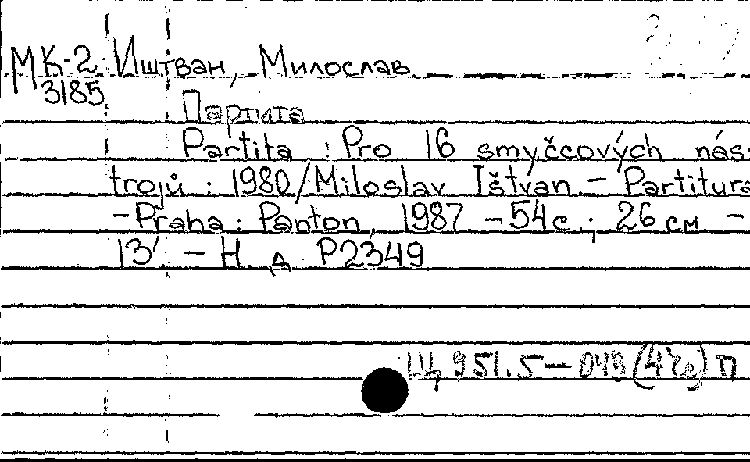 МК-2 Иштван, Милослав
3185
Партита
Partita : Pro 16 smyčcových nás-
trojů : 1980/Miloslav Ištvan – Partitura
– Praha : Panton, 1987 – 54 с. ; 26 см –
13' – Н. д. P2349
Щ 951.5 – 048 (4Че) П